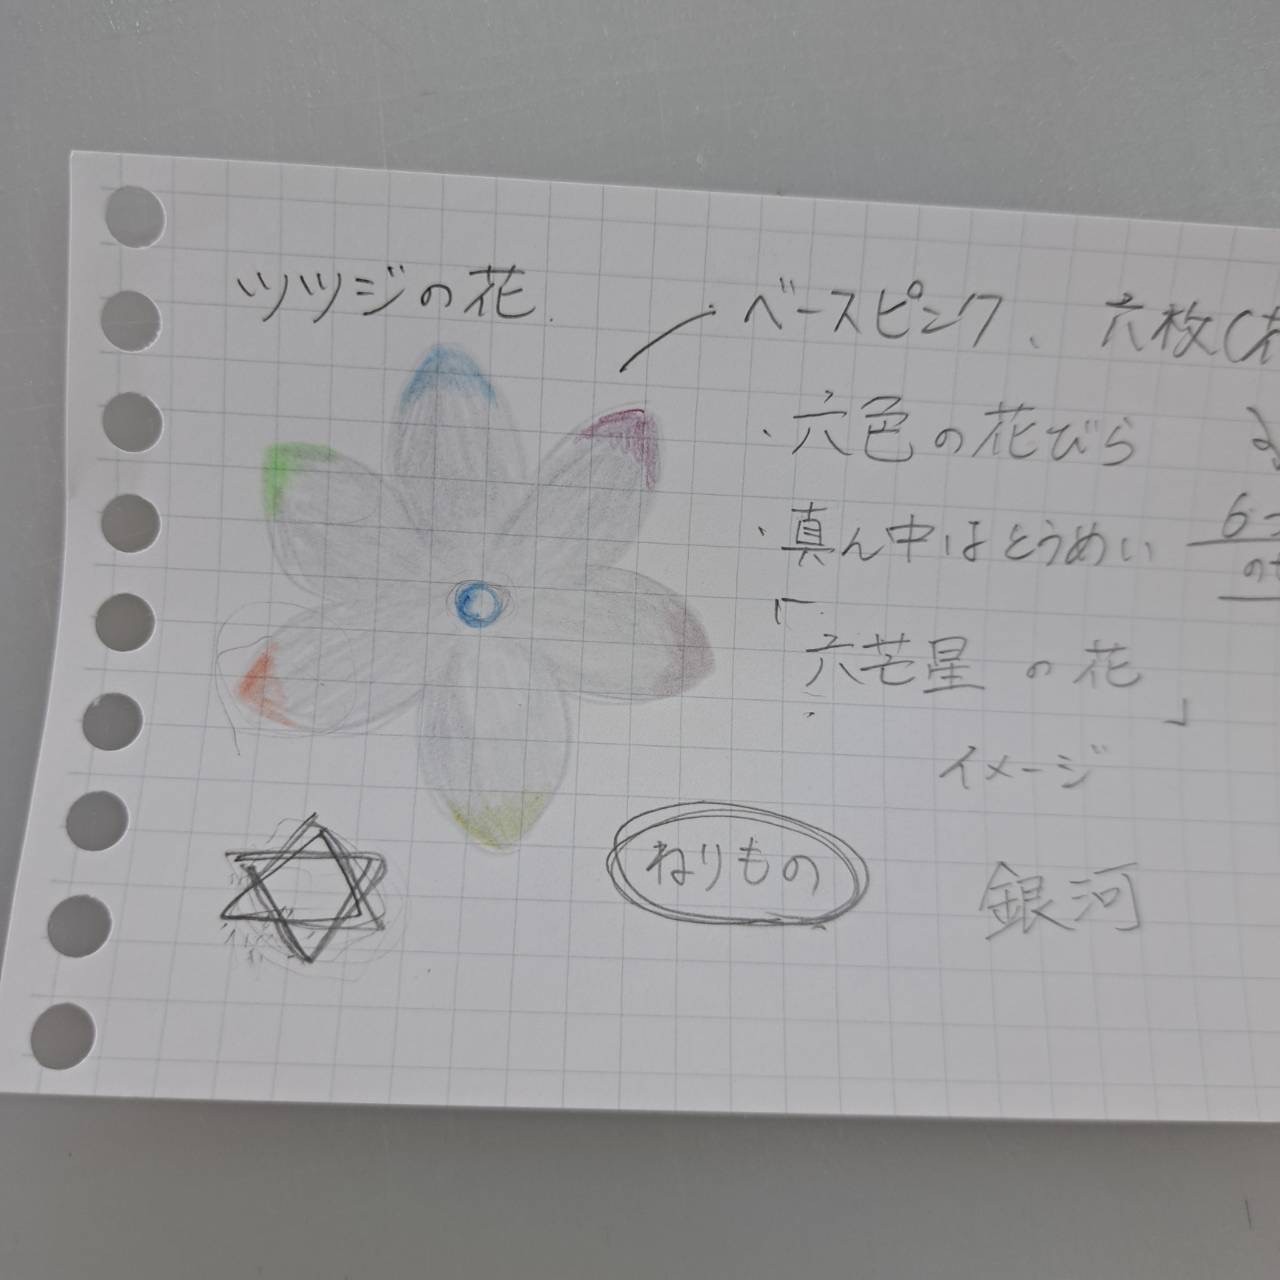 ツツジの花.
・ベースピンク、六枚(
・六色の花びら
・真ん中はとうめい
「六芒星の花」
イメージ
ねりもの
銀河